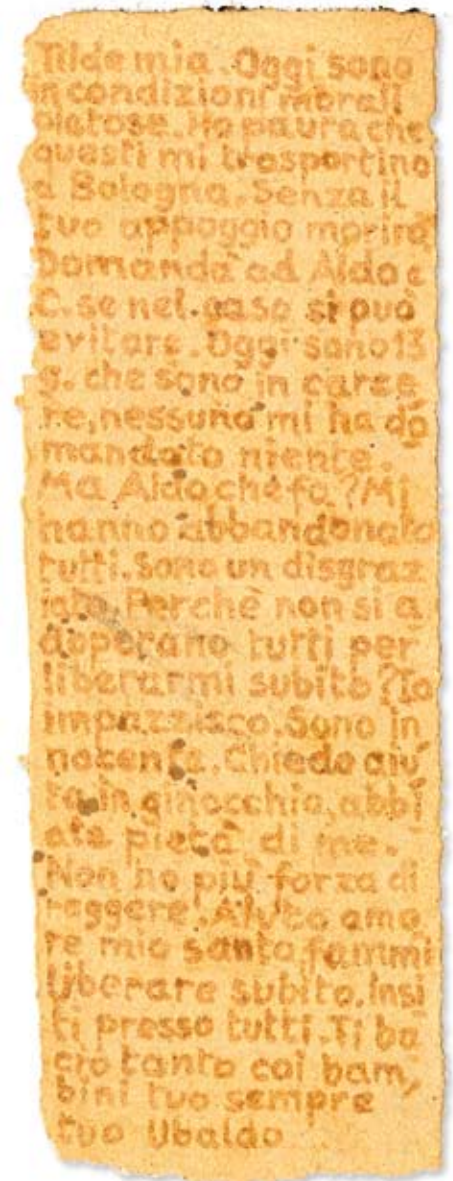 Tilde mia. Oggi sono
in condizioni morali
pietose. Ho paura che
questi mi trasportino
a Bologna. Senza il
tuo appoggio morirò
Domanda ad Aldo e
C. se nel caso si può
evitare. Oggi sono 13
g. che sono in carce
re, nessuno mi ha do
mandato niente.
Ma Aldo che fa? Mi
hanno abbandonato
tutti. Sono un disgraz
iato. Perchè non si a
doperano tutti per
liberarmi subito? Io
impazzisco. Sono in
nocente. Chiedo aiu
to in ginocchio, abbi
ate pietà di me.
Non ho più forza di
reggere. Aiuto amo
re mio santo, fammi
liberare subito. Insi
ti presso tutti. Ti ba
cio tanto coi bam,
bini tuo sempre
tuo Ubaldo